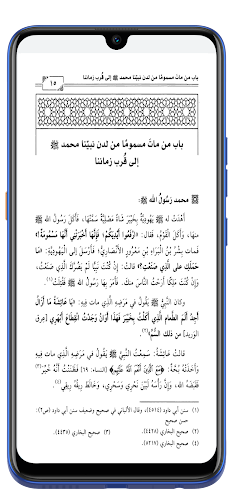 باب من مات مسمومًا من لدن نبيّنا محمد ﷺ إلى قُرب زماننا
١٥
باب من مات مسمومًا من لدن نبيّنا محمد ﷺ
إلى قُرب زماننا
محمد رَسُولُ الله ﷺ:
أَهْدَتْ له ﷺ يَهُودِيَّةٌ بِخَيْبَرَ شَاةً مَصْلِيَّةً سَمَّتْهَا، فَأَكَلَ رسولُ الله ﷺ
مِنها، وَأَكَلَ القَوْمُ، فقال: «ارْفَعُوا أَيْدِيَكُمْ؛ فَإِنَّهَا أَخْبَرَتْنِي أَنَّهَا مَسْمُومَةٌ»؛
فَمَاتَ بِشْرُ بْنُ الْبَرَاءِ بْنِ مَعْرُورٍ الأَنْصَارِيُّ؛ فَأَرْسَلَ إلى الْيَهُودِيَّةِ: «مَا
حَمَلَكِ على الَّذِي صَنَعْتِ؟» قالت: إن كُنْتَ نَبِيًّا لم يَضُرَّكَ الَّذِي صَنَعْتُ،
وَإِنْ كُنْتَ مَلِكًا أَرَحْتُ النَّاسَ مِنكَ. فَأَمَرَ بها رسولُ الله ﷺ فَقُتِلَتْ(١).
وكان النَّبِيُّ ﷺ يَقُولُ في مَرَضِهِ الَّذِي مَات فِيهِ: «يَا عَائِشَةُ مَا أَزَالُ
أَجِدُ أَلَمَ الطَّعَامِ الَّذِي أَكَلْتُ بِخَيْبَرَ فَهَذَا أَوَانُ وَجَدْتُ انْقِطَاعَ أَبْهَرِي [عِرق
الوَرِيد] من ذلك السُّمِّ»(٢).
قالت عَائِشَةُ: سَمِعْتُ النَّبِيَّ ﷺ يَقُولُ في مَرَضِهِ الَّذِي مات فيه
وَأَخَذَتْهُ بُحَّةٌ: ﴿مَعَ الَّذِينَ أَنْعَمَ اللَّهُ عَلَيْهِم﴾ [النساء: ٦٩] فَظَنَنْتُ أَنَّهُ خُيِّرَ(٣)
فَقَبَضَهُ الله، وَإِنَّ رَأْسَهُ لَبَيْنَ نَحْرِي وَسَحْرِي، وَخَالَطَ رِيقُهُ رِيقِي(٤).
(١) سنن أبي داود (٤٥١٢)، وقال الألباني في صحيح وضعيف سنن أبي داود
حسن صحيح
(٢) صحيح البخاري (٤٤٢٨).
(٣) صحيح البخاري (٤٤٣٥).
(٤) صحيح البخاري